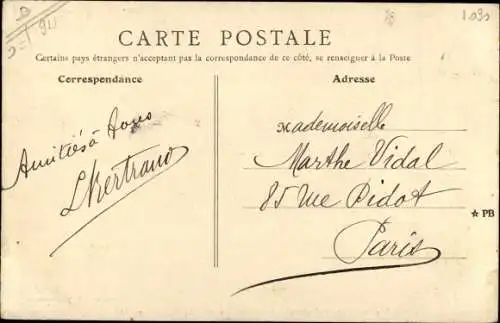 1.030
CARTE POSTALE
Certains pays étrangers n'acceptant pas la correspondance de ce côté, se renseigner à la Poste
Correspondance
Adresse
Amitiés à tous
LBertrand
Mademoiselle
Marthe Vidal
85 rue Didot
Paris
★ PB